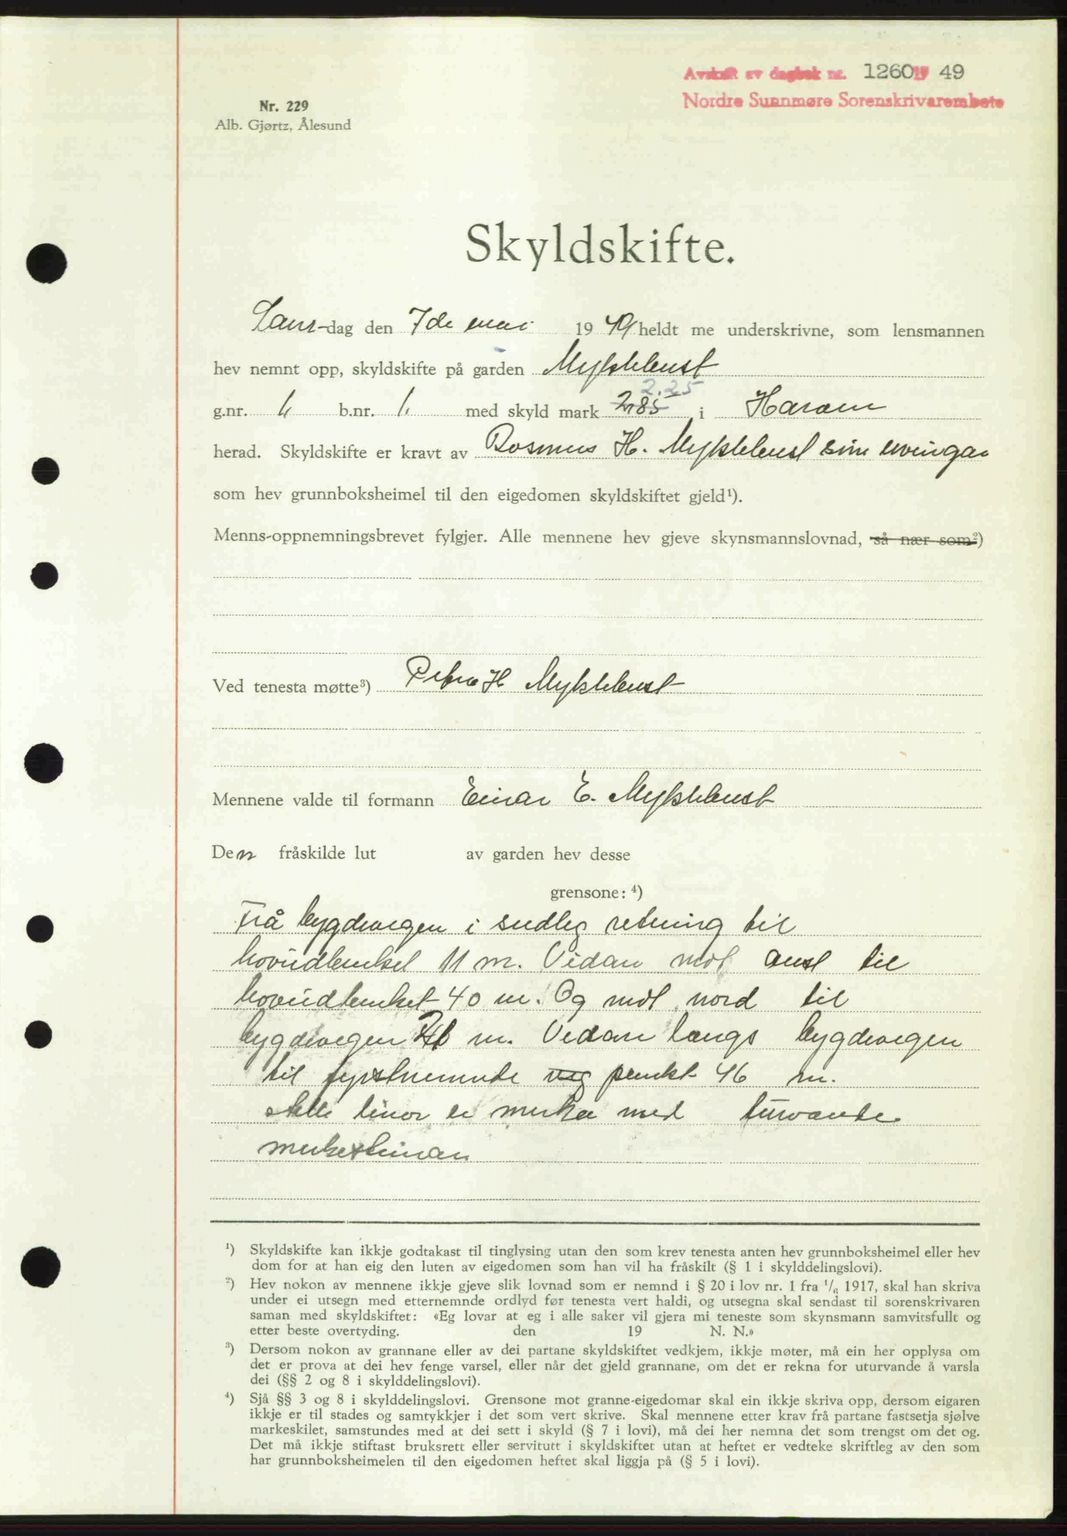 Avskrift av dagbok nr. 1260 19 49
Nordre Sunnmøre Sorenskrivarembete
Nr. 229
Alb. Gjørtz, Ålesund
Skyldskifte.
Laur-dag den 7de mai 1949 heldt me underskrivne, som lensmannen
hev nemnt opp, skyldskifte på garden Myklebust
2.25
g.nr. 4 b.nr. 1. med skyld mark 2,85 i Haram
herad. Skyldskifte er kravt av Rasmus H. Myklebust som
som hev grunnboksheimel til den eigedomen skyldskiftet gjeld¹).
Menns-oppnemningsbrevet fylgjer. Alle mennene hev gjeve skynsmannslovnad, så nær som²)
Ved tenesta møtte³) Petra H Myklebust
Mennene valde til formann Einar E. Myklebust
Den fråskilde lut av garden hev desse
grensone: ⁴)
Frå bygdevegen i sudleg retning til
hovudbruket 11 m. Vidare mot aust til
hovudbruket 40 m. Og mot nord til
bygdevegen m. Vidare langs bygdevegen
til fyrstnemnde punkt 46 m.
Alle linor er merka med turvande
merkesteinar
¹) Skyldskifte kan ikkje godtakast til tinglysing utan den som krev tenesta anten hev grunnboksheimel eller hev
dom for at han eig den luten av eigedomen som han vil ha fråskilt (§ 1 i skylddelingslovi).
²) Hev nokon av mennene ikkje gjeve slik lovnad som er nemnd i § 20 i lov nr. 1 fra ¹/₆ 1917, skal han skriva
under ei utsegn med etternemnde ordlyd før tenesta vert haldi, og utsegna skal sendast til sorenskrivaren
saman med skyldskiftet: «Eg lovar at eg i alle saker vil gjera mi teneste som skynsmann samvitsfullt og
etter beste overtyding. den 19 N. N.»
³) Dersom nokon av grannane eller av dei partane skyldskiftet vedkjem, ikkje møter, må ein her opplysa om
det er prova at dei hev fenge varsel, eller når det gjeld grannane, om det er rekna for uturvande å varsla
dei (§§ 2 og 8 i skylddelingslovi).
⁴) Sjå §§ 3 og 8 i skylddelingslovi. Grensone mot granne-eigedomar skal ein ikkje skriva opp, dersom eigaren
ikkje er til stades og samtykkjer i det som vert skrive. Skal mennene etter krav frå partane fastsetja sjølve
markeskilet, samstundes med at dei sett i skyld (§ 7 i lovi), må dei her nemna det som trengst om det og.
Det må ikkje stiftast bruksrett eller servitutt i skyldskiftet utan at heftet er vedteke skriftleg av den som
har grunnboksheimelen til den eigedomen heftet skal liggja på (§ 5 i lovi).